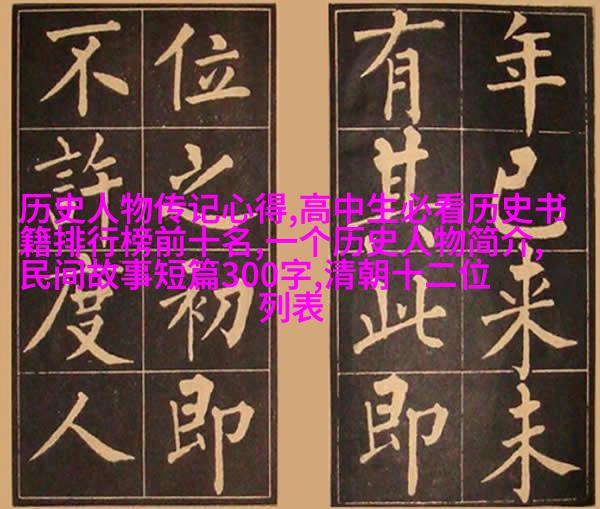 历史人物传记心得,高中生必看历史书
籍排行榜前十名,一个历史人物简介,
民间故事短篇300字,清朝十二位
列表
年已来未
有其此即
位之初即
不許度人